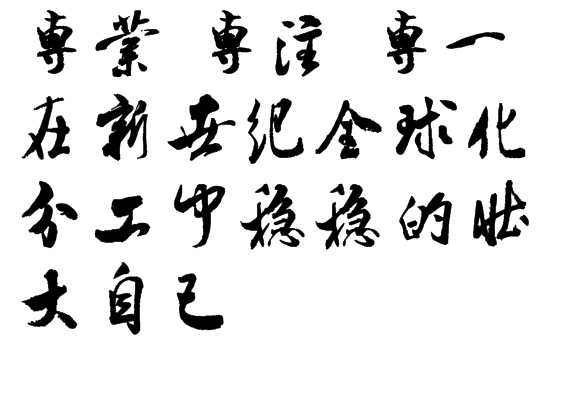 專業 專注 專一
在新世纪全球化
分工中稳稳的壮
大自己